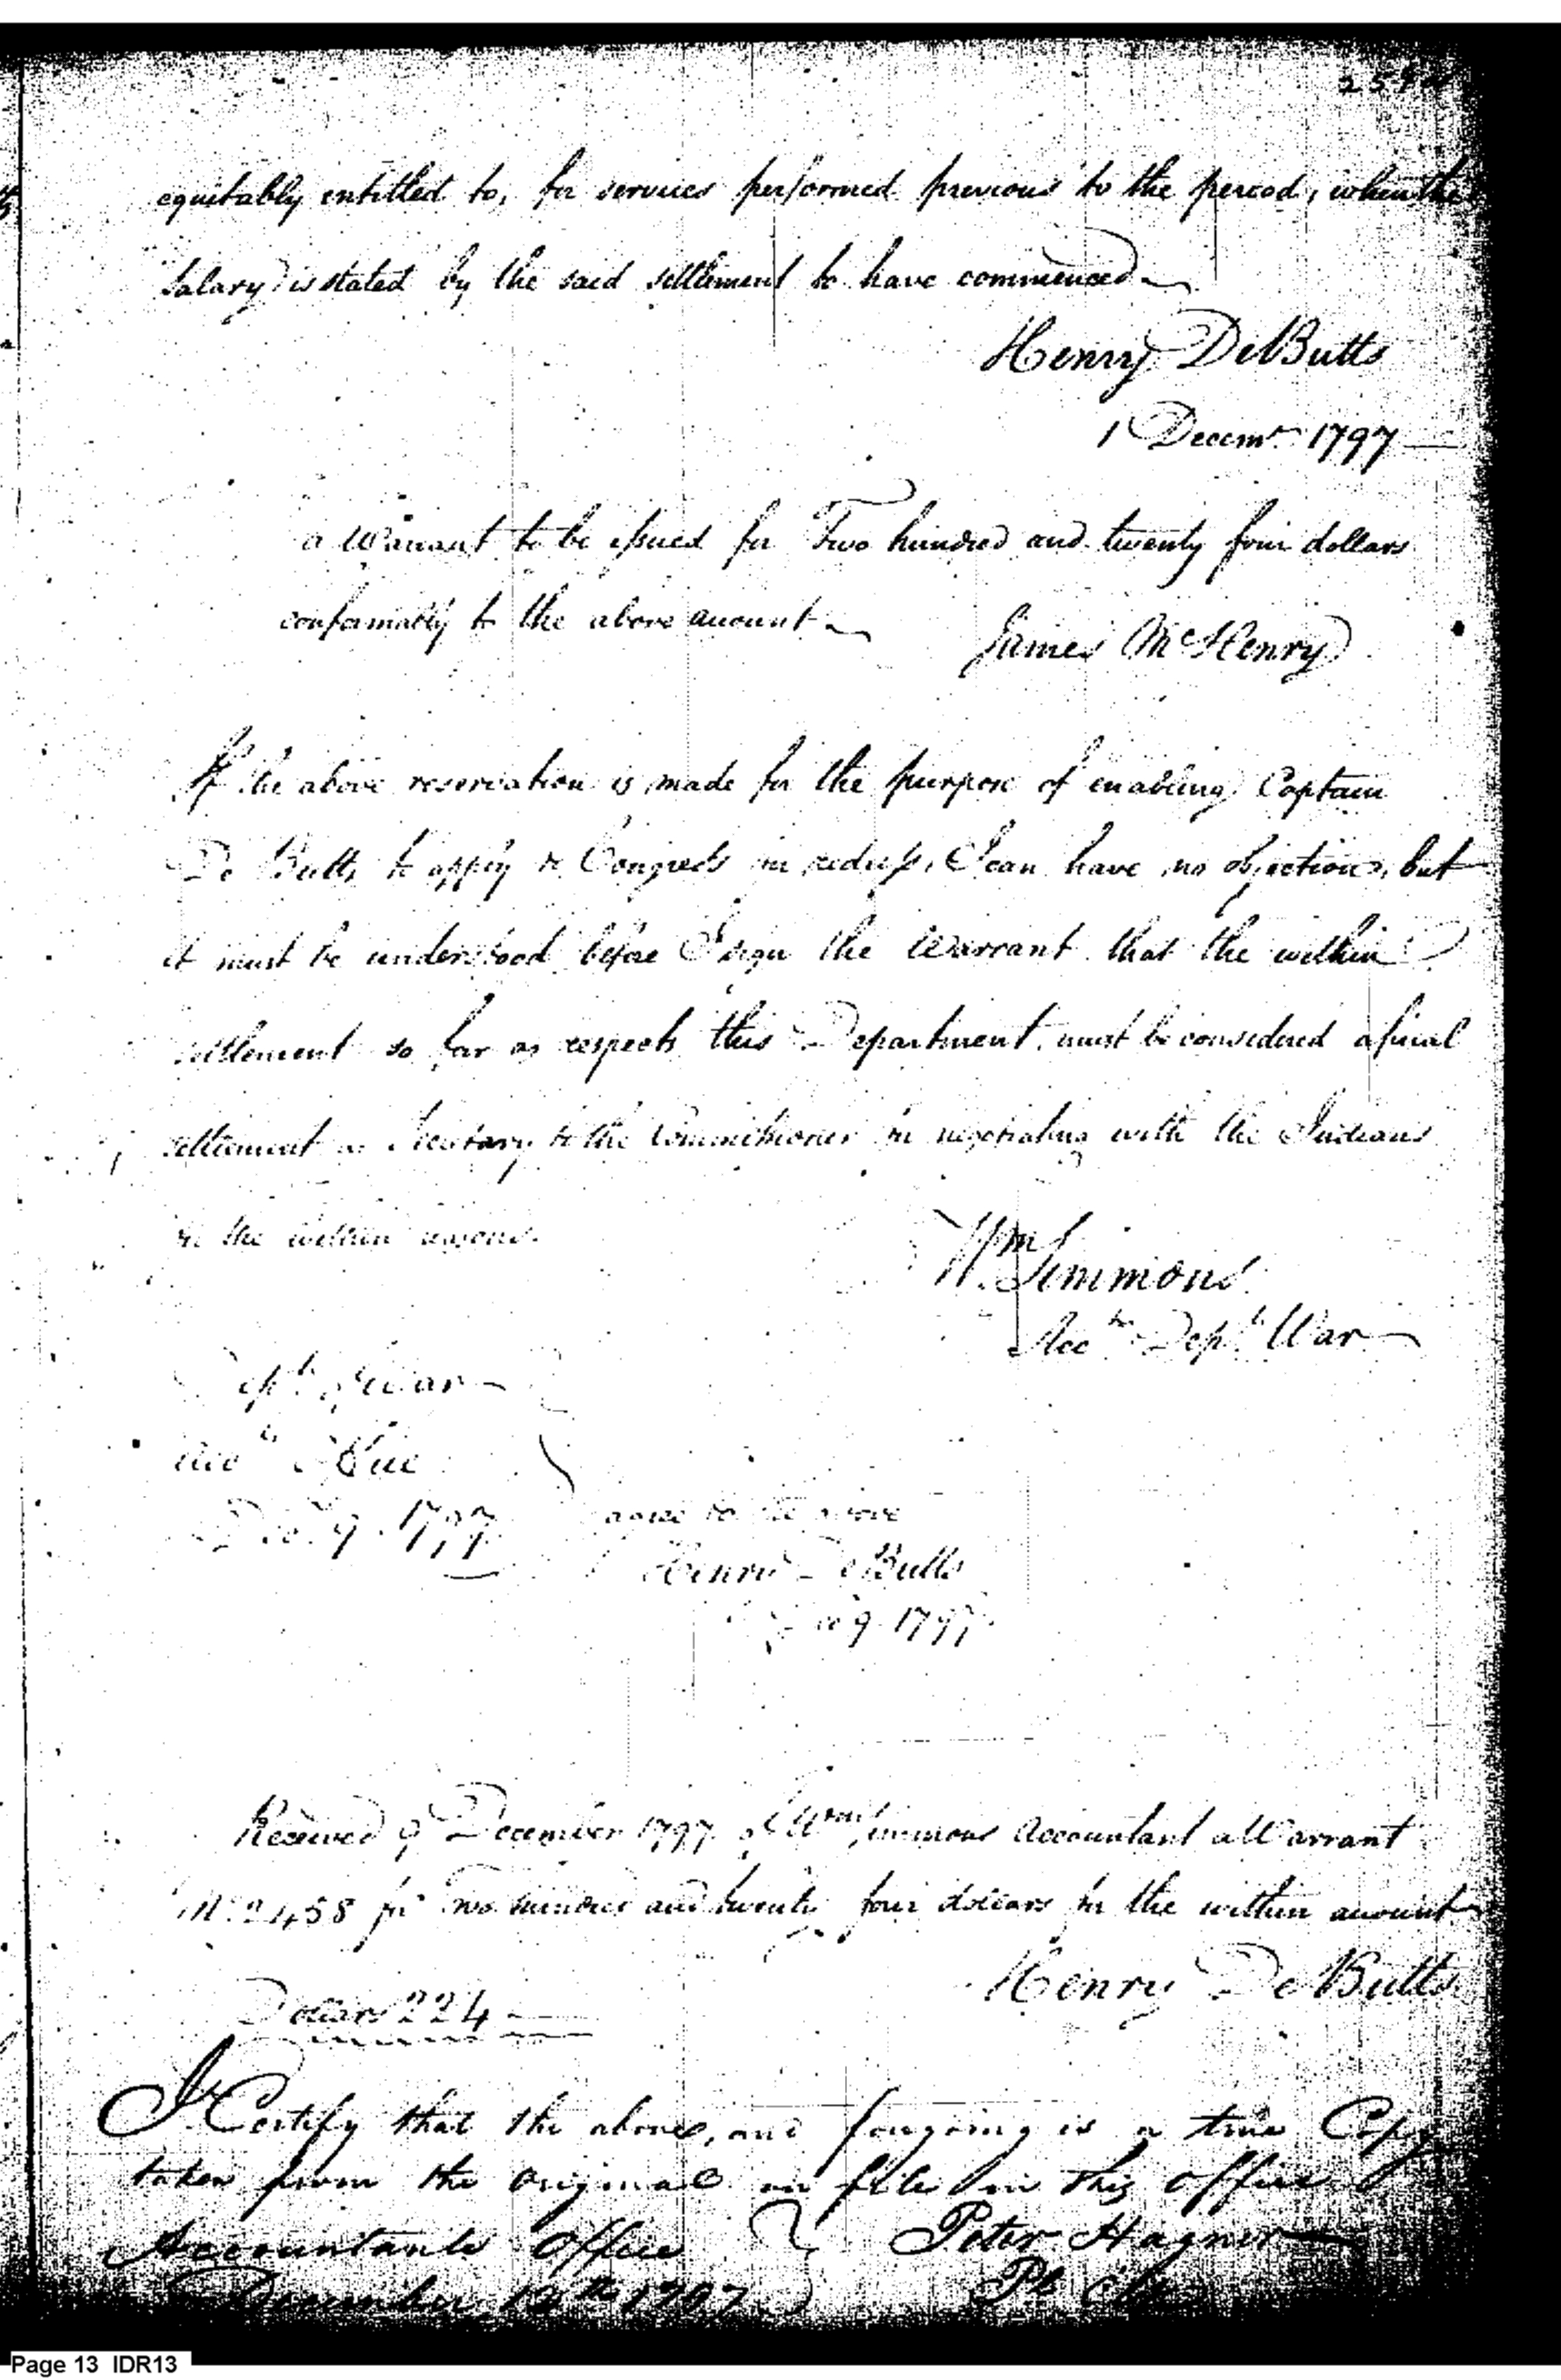 equitably entitled to, for services performed previous to the period, when the
salary is stated by the said settlement to have commenced
Henry DeButts
1 Decemr. 1797
a Warrant to be issued for Two hundred and twenty four dollars
conformably to the above amount
James McHenry
If the above reservation is made for the purpose of enabling Captain
De Butts to apply to Congress for redress, I can have no objection, but
it must be understood before I sign the Warrant that the within
settlement so far as respects this Department, must be considered a final
settlement as Secretary to the Commissioner for negotiating with the Indians
in the within
Wm Simmons
Acct. Dept. War
Dept. of War
Decr. 9. 1797
agree to the above
Henry DeButts
Dec 9 1797
Received 9 December 1797 of Wm Simmons Accountant a Warrant
No. 2458 for Two hundred and twenty four dollars for the within amount
Henry De Butts
Dollars 224
I Certify that the above, and foregoing is a true Copy
taken from the Original on file in this office
Accountants Office
Peter Hagner
December 12th 1797
Pl Clk
Page 13 IDR13